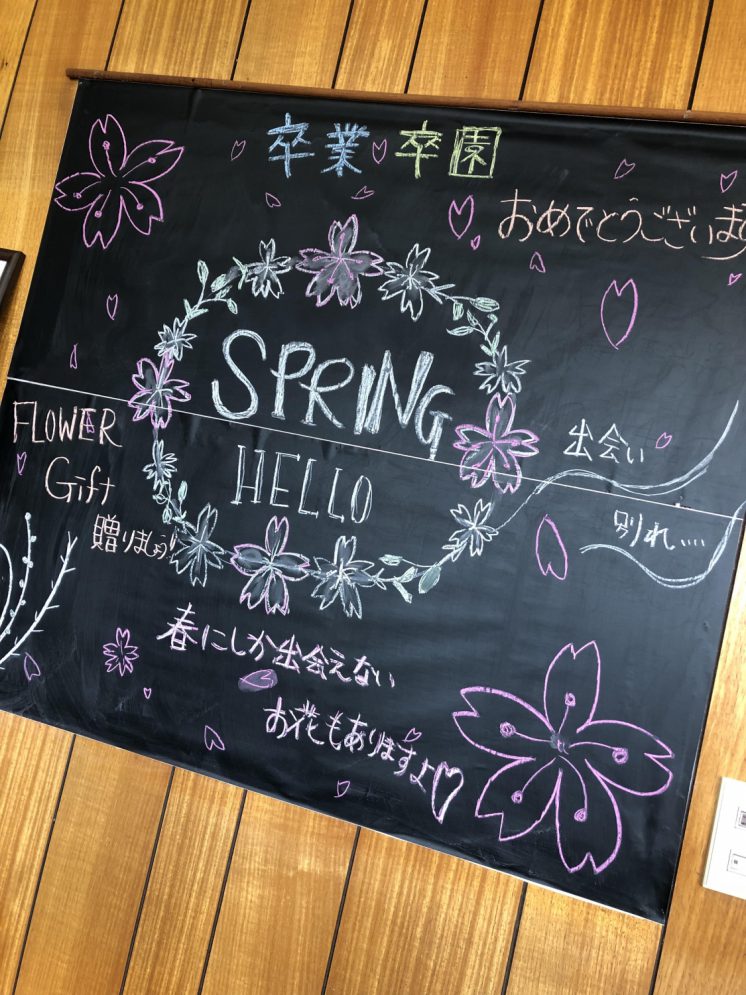 卒業 卒園
おめでとうございます
SPRING
HELLO
FLOWER
Gift
贈りましょう!
出会い
別れ....
春にしか出会えない
お花もありますよ♡